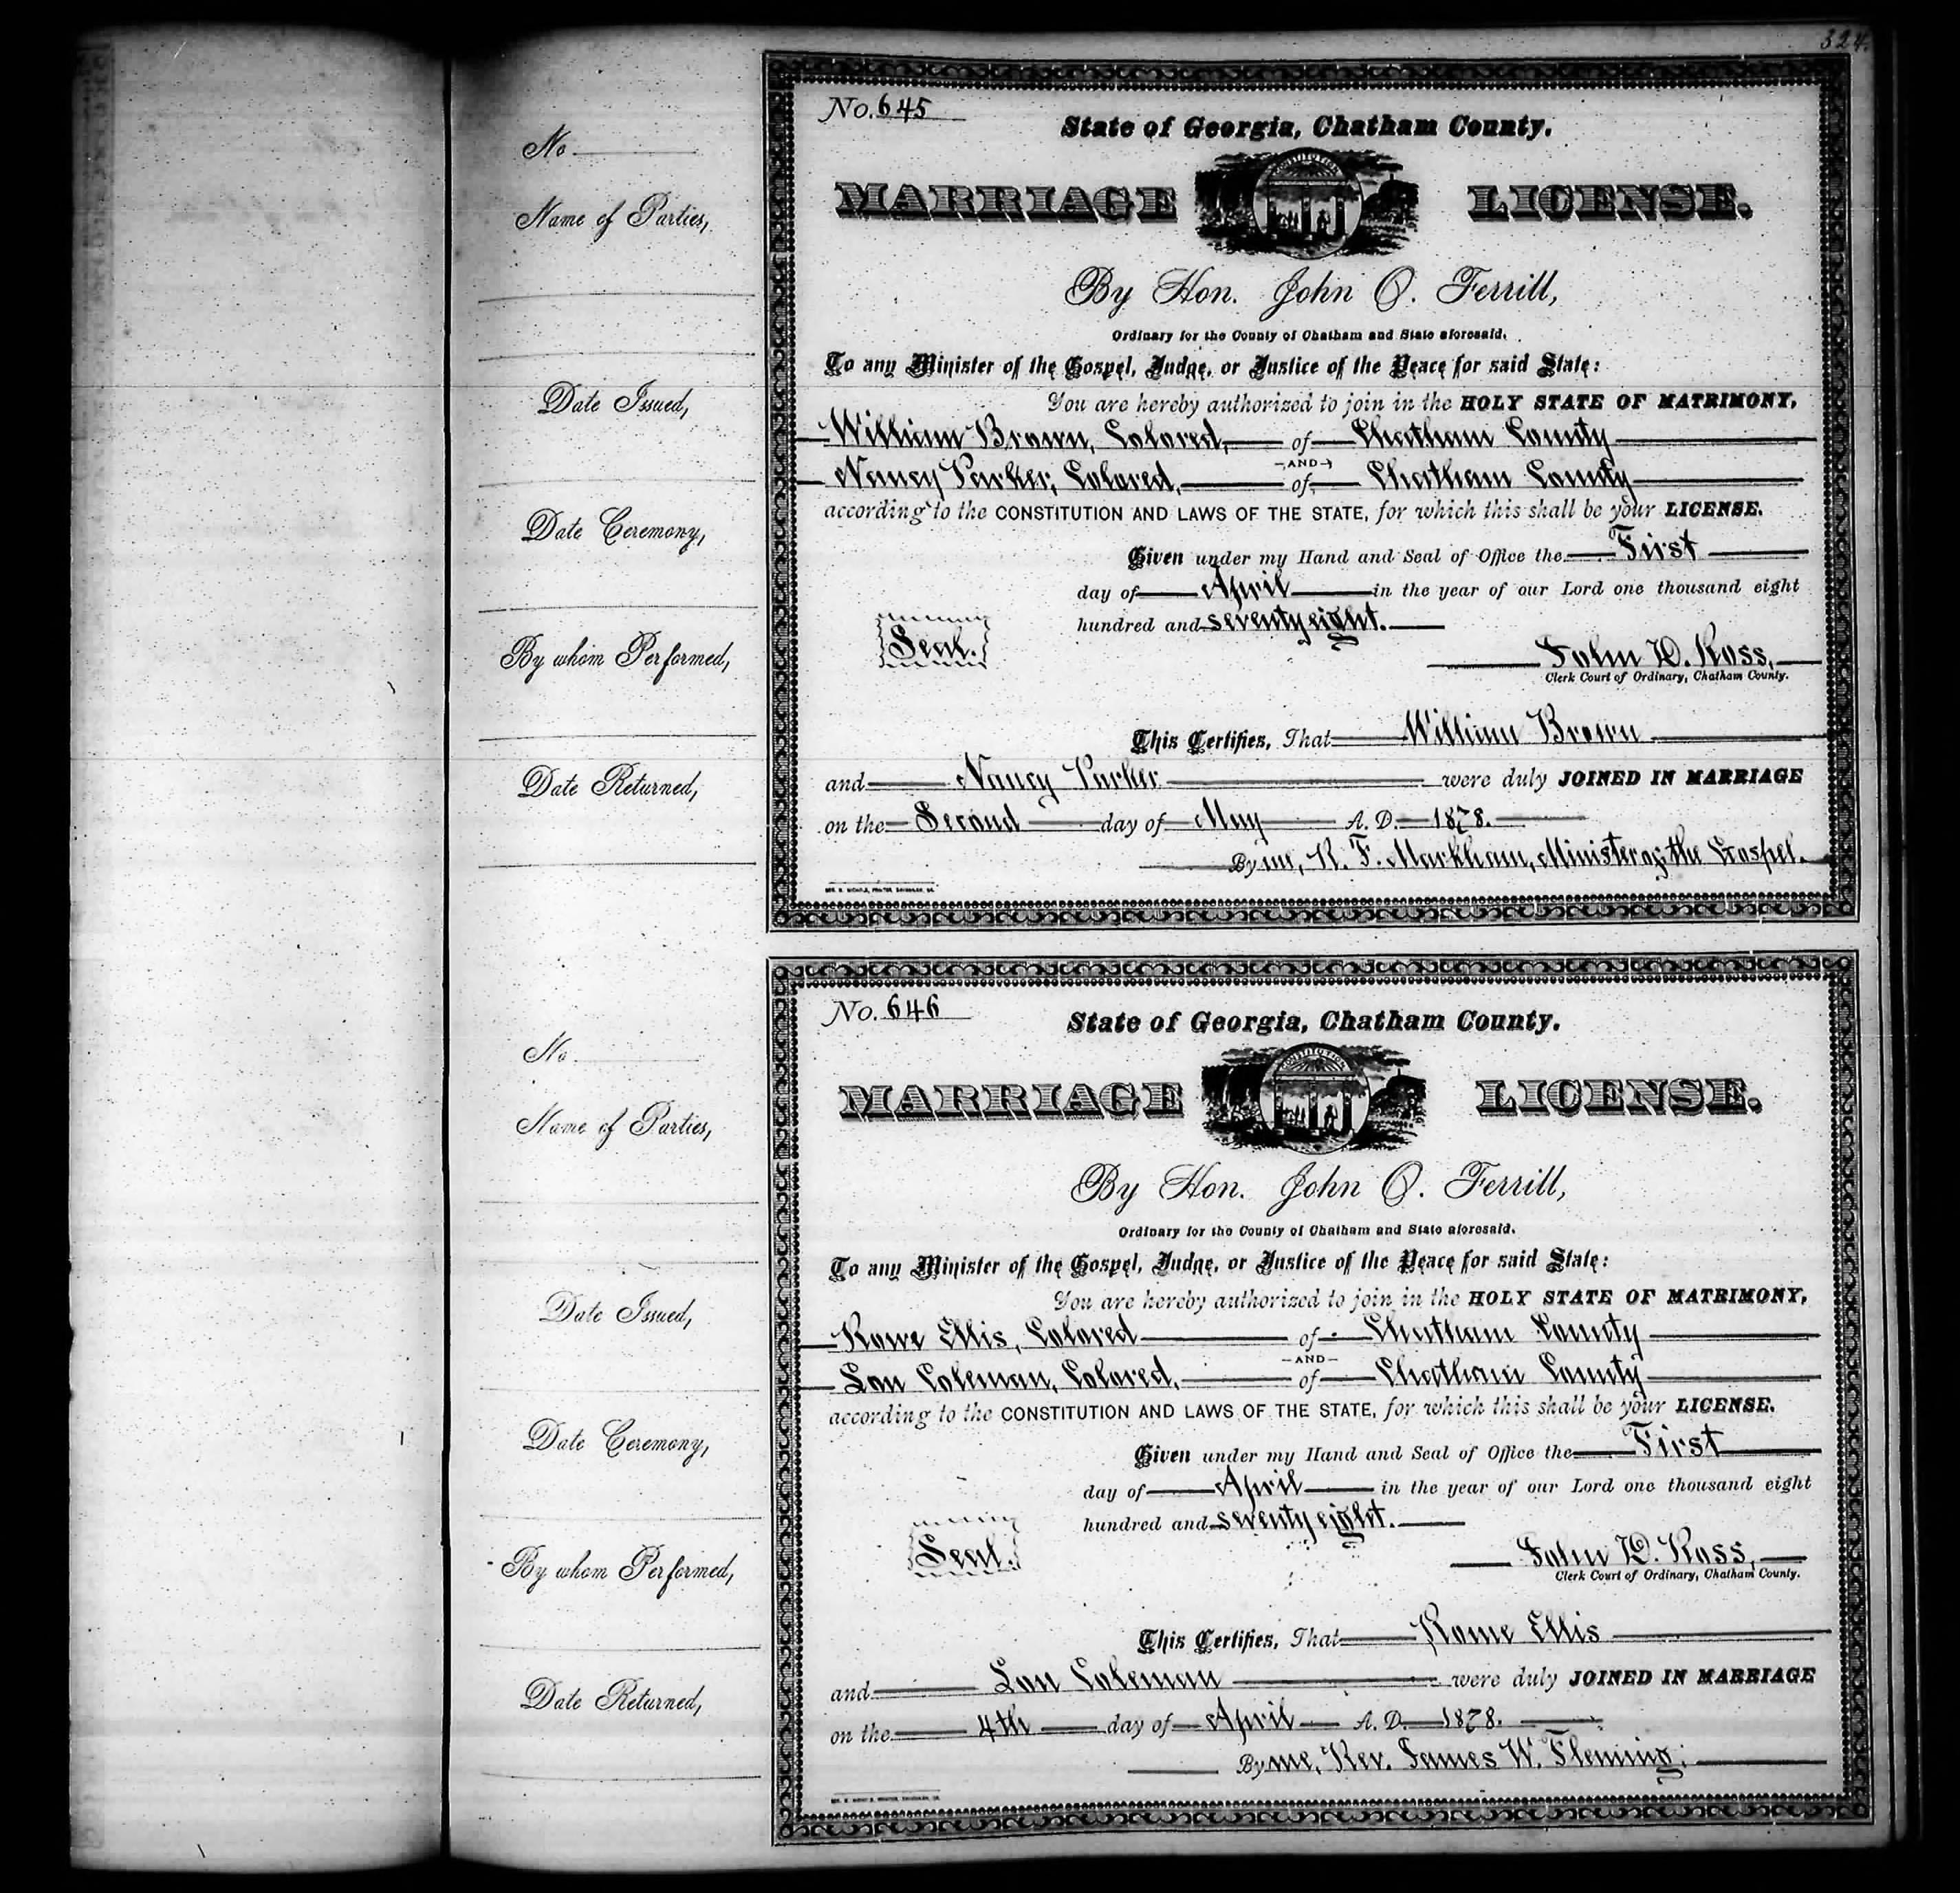 324.
No
Name of Parties,
Date Issued,
Date Ceremony,
By whom Performed,
Date Returned,
No. 645
State of Georgia, Chatham County.
MARRIAGE LICENSE.
CONSTITUTION
By Hon. John O. Ferrill,
Ordinary for the County of Chatham and State aforesaid.
To any Minister of the Gospel, Judge, or Justice of the Peace for said State:
You are hereby authorized to join in the HOLY STATE OF MATRIMONY,
William Brown, Colored, of Chatham County
AND
Nancy Parker, Colored, of Chatham County
according to the CONSTITUTION AND LAWS OF THE STATE, for which this shall be your LICENSE.
Given under my Hand and Seal of Office the First
day of April in the year of our Lord one thousand eight
hundred and seventy eight.
Seal.
John D. Ross,
Clerk Court of Ordinary, Chatham County.
This Certifies, That William Brown
and Nancy Parker were duly JOINED IN MARRIAGE
on the Second day of May A. D. 1878.
By me, R. F. Markham, Minister of the Gospel.
No
Name of Parties,
Date Issued,
Date Ceremony,
By whom Performed,
Date Returned,
No. 646
State of Georgia, Chatham County.
MARRIAGE LICENSE.
CONSTITUTION
By Hon. John O. Ferrill,
Ordinary for the County of Chatham and State aforesaid.
To any Minister of the Gospel, Judge, or Justice of the Peace for said State:
You are hereby authorized to join in the HOLY STATE OF MATRIMONY,
Rowe Ellis, Colored of Chatham County
AND
Lou Coleman, Colored, of Chatham County
according to the CONSTITUTION AND LAWS OF THE STATE, for which this shall be your LICENSE.
Given under my Hand and Seal of Office the First
day of April in the year of our Lord one thousand eight
hundred and seventy eight.
Seal.
John D. Ross,
Clerk Court of Ordinary, Chatham County.
This Certifies, That Rome Ellis
and Lou Coleman were duly JOINED IN MARRIAGE
on the 4th day of April A. D. 1878.
By me, Rev. James W. Fleming.